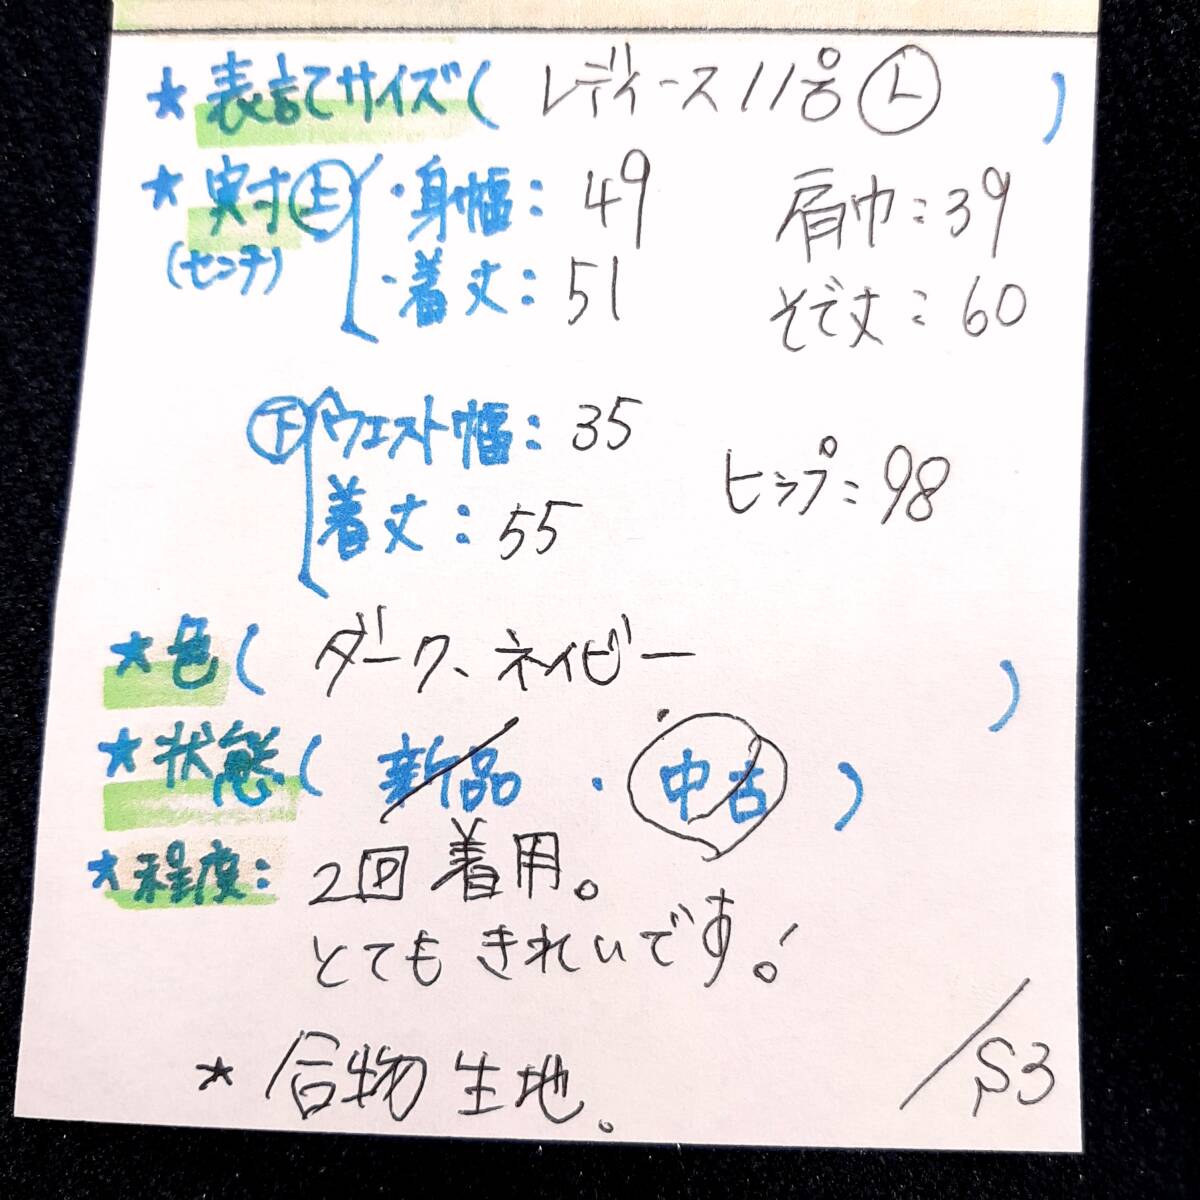 ★表記サイズ( レディース11号Ⓛ )
★実寸㊤ ・身幅：49 肩巾：39
(センチ) ・着丈：51 そで丈：60
㊦ ウエスト幅：35 ヒップ：98
着丈：55
★色( ダーク、ネイビー )
★状態( 新品 ・ 中古 )
★程度：2回着用。
とてもきれいです！
★合物生地。
/S3